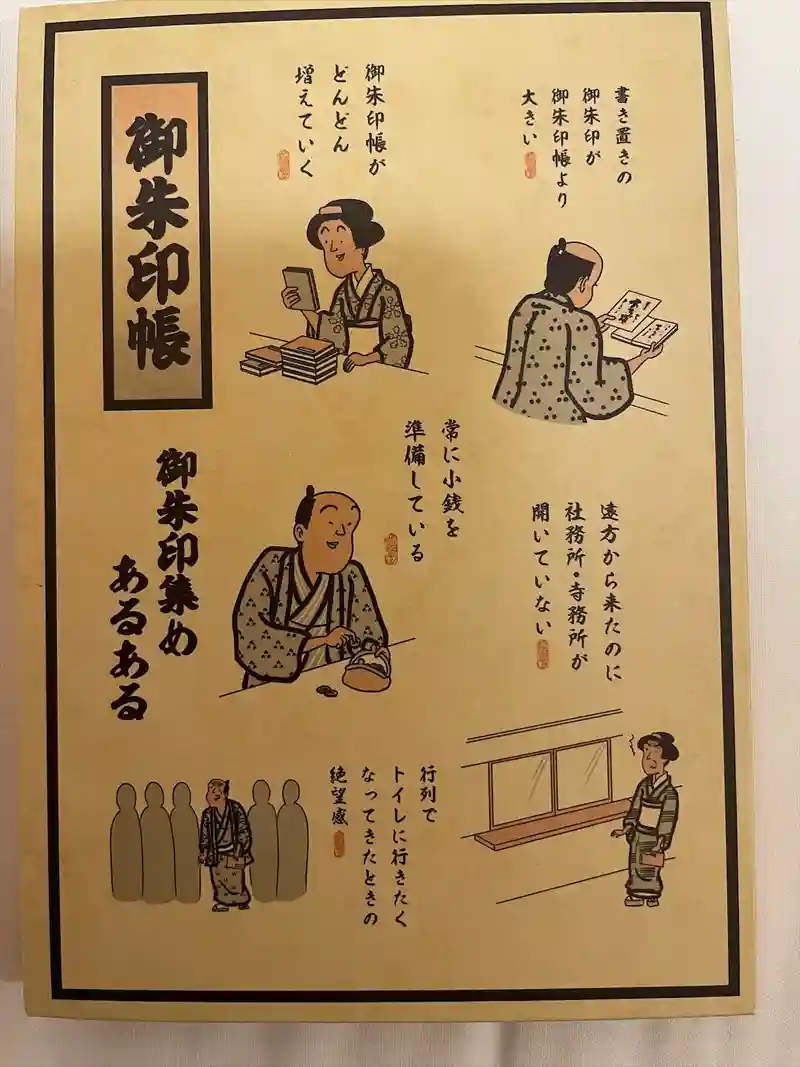 書き置きの
御朱印が
御朱印帳より
大きい
御朱印帳が
どんどん
増えていく
御朱印帳
遠方から来たのに
社務所・寺務所が
開いていない
常に小銭を
準備している
御朱印集め
あるある
行列で
トイレに行きたく
なってきたときの
絶望感